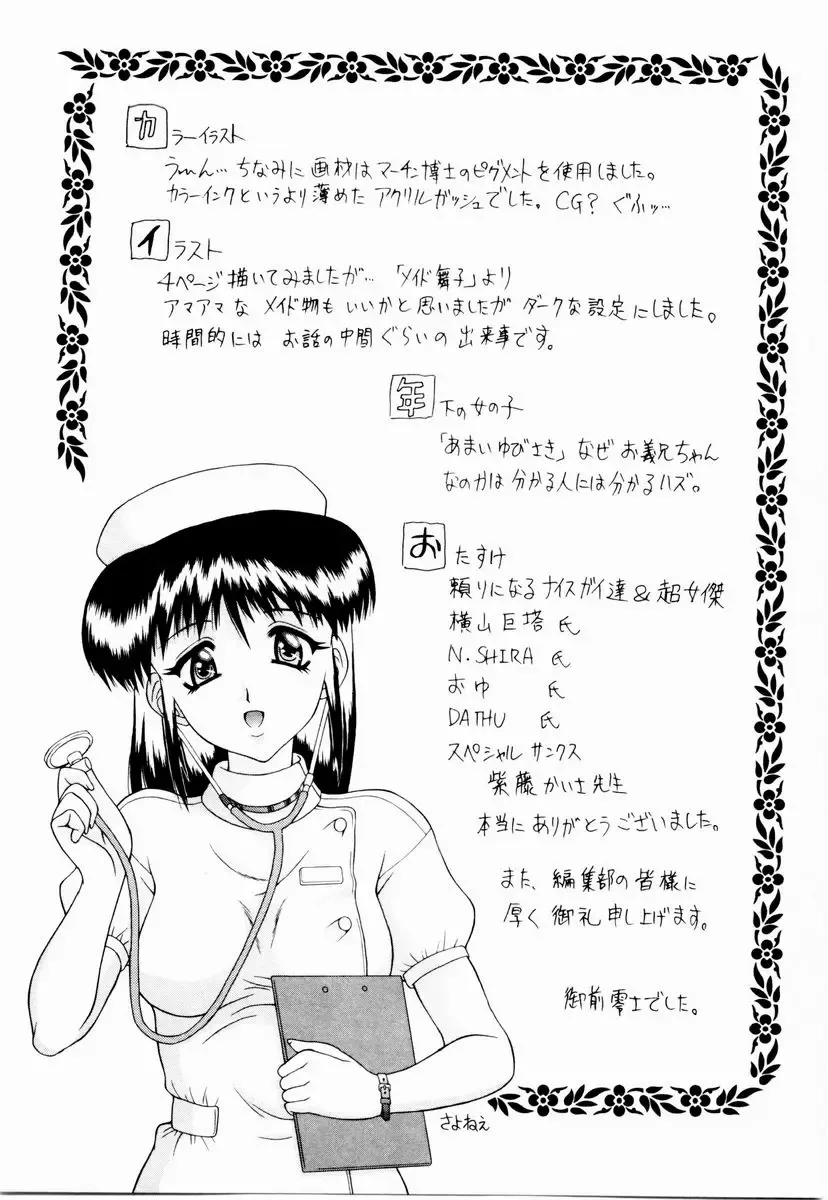 カラーイラスト
う〜ん…ちなみに画材はマーチン博士のピグメントを使用しました。
カラーインクというより薄めたアクリルガッシュでした。CG? ぐふッ…
イラスト
4ページ描いてみましたが…「メイド舞子」より
アマアマなメイド物もいいかと思いましたがダークな設定にしました。
時間的にはお話の中間ぐらいの出来事です。
年下の女の子
「あまいゆびさき」なぜお義兄ちゃん
なのかは分かる人には分かるハズ。
おたすけ
頼りになるナイスガイ達&超女傑
横山巨塔 氏
N.SHIRA 氏
おゆ 氏
DATHU 氏
スペシャルサンクス
紫藤かいさ先生
本当にありがとうございました。
また、編集部の皆様に
厚く御礼申し上げます。
御前零士でした。
さよねえ